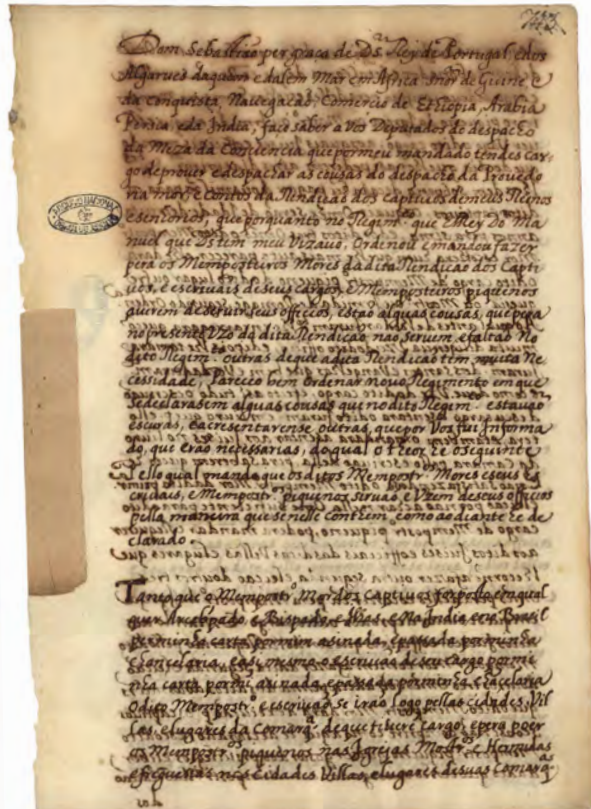 Dom Sebastião per graça de Ds Rey de Portugal, e dos
Algarues daquem e dalem Mar em Africa snor de Guine e
da conquista, Nauegacão, Comercio de Ethiopia, Arabia
Persia, e da India, faço saber a Vos Deputados do despacho
da Meza da Conciencia que por meu mandado tendes car
go de prouer e despachar as cousas do despacho da Prouedo
ria mor, e contos da Rendicão dos captiuos de meus Reinos
e senhorios, que porquanto no Regimto que El Rey Dom Ma
nuel que Ds tem meu Vizauo, Ordenou e mandou fazer
pera os Memposteiros Mores da dita Rendicão dos Capti
uos, e escriuais de seus cargos, e Memposteiros piquenos
querem de seruir seus officios, estão alguas cousas, que pera
no presente Uzo da dita Rendicão não seruem, e faltão No
dito Regimto outras de que a dita Rendicão tem muita Ne
cessidade, Pareceo bem Ordenar nouo Regimento em que
se declarasem alguas cousas que no dito Regimto estauão
escuras, e acresentarense outras, que por Vos fui Informa
do, que erão necessarias, do qual o theor he o seguinte
Pello qual mando que os ditos Mempostros Mores e seus es
criuais, e Mempostros piquenos siruão, e Uzem de seus officios
pella maneira que se nelle contem, como ao diante he de
clarado
Tanto que o Mempostro Mor dos Captiuos for posto em qual
quer Arcebpado, e Bispado, e Ilhas, e Na India e no Brasil
per minha carta por mim asinada, e pasada por minha
chancelaria, e asi mesmo o escriuão de seu cargo por mi
nha carta por mi asinada, e pasada por minha chacelaria
O dito Mempostro, e escriuão se irão logo pellas cidades, Vil
las, e lugares da Comarqa de que tiuere cargo, e pera poer
os Mempostros piquenos nas Igrejas Mostros e Hermidas
e freguesias nas Cidades Villas, e lugares de suas Comarqas